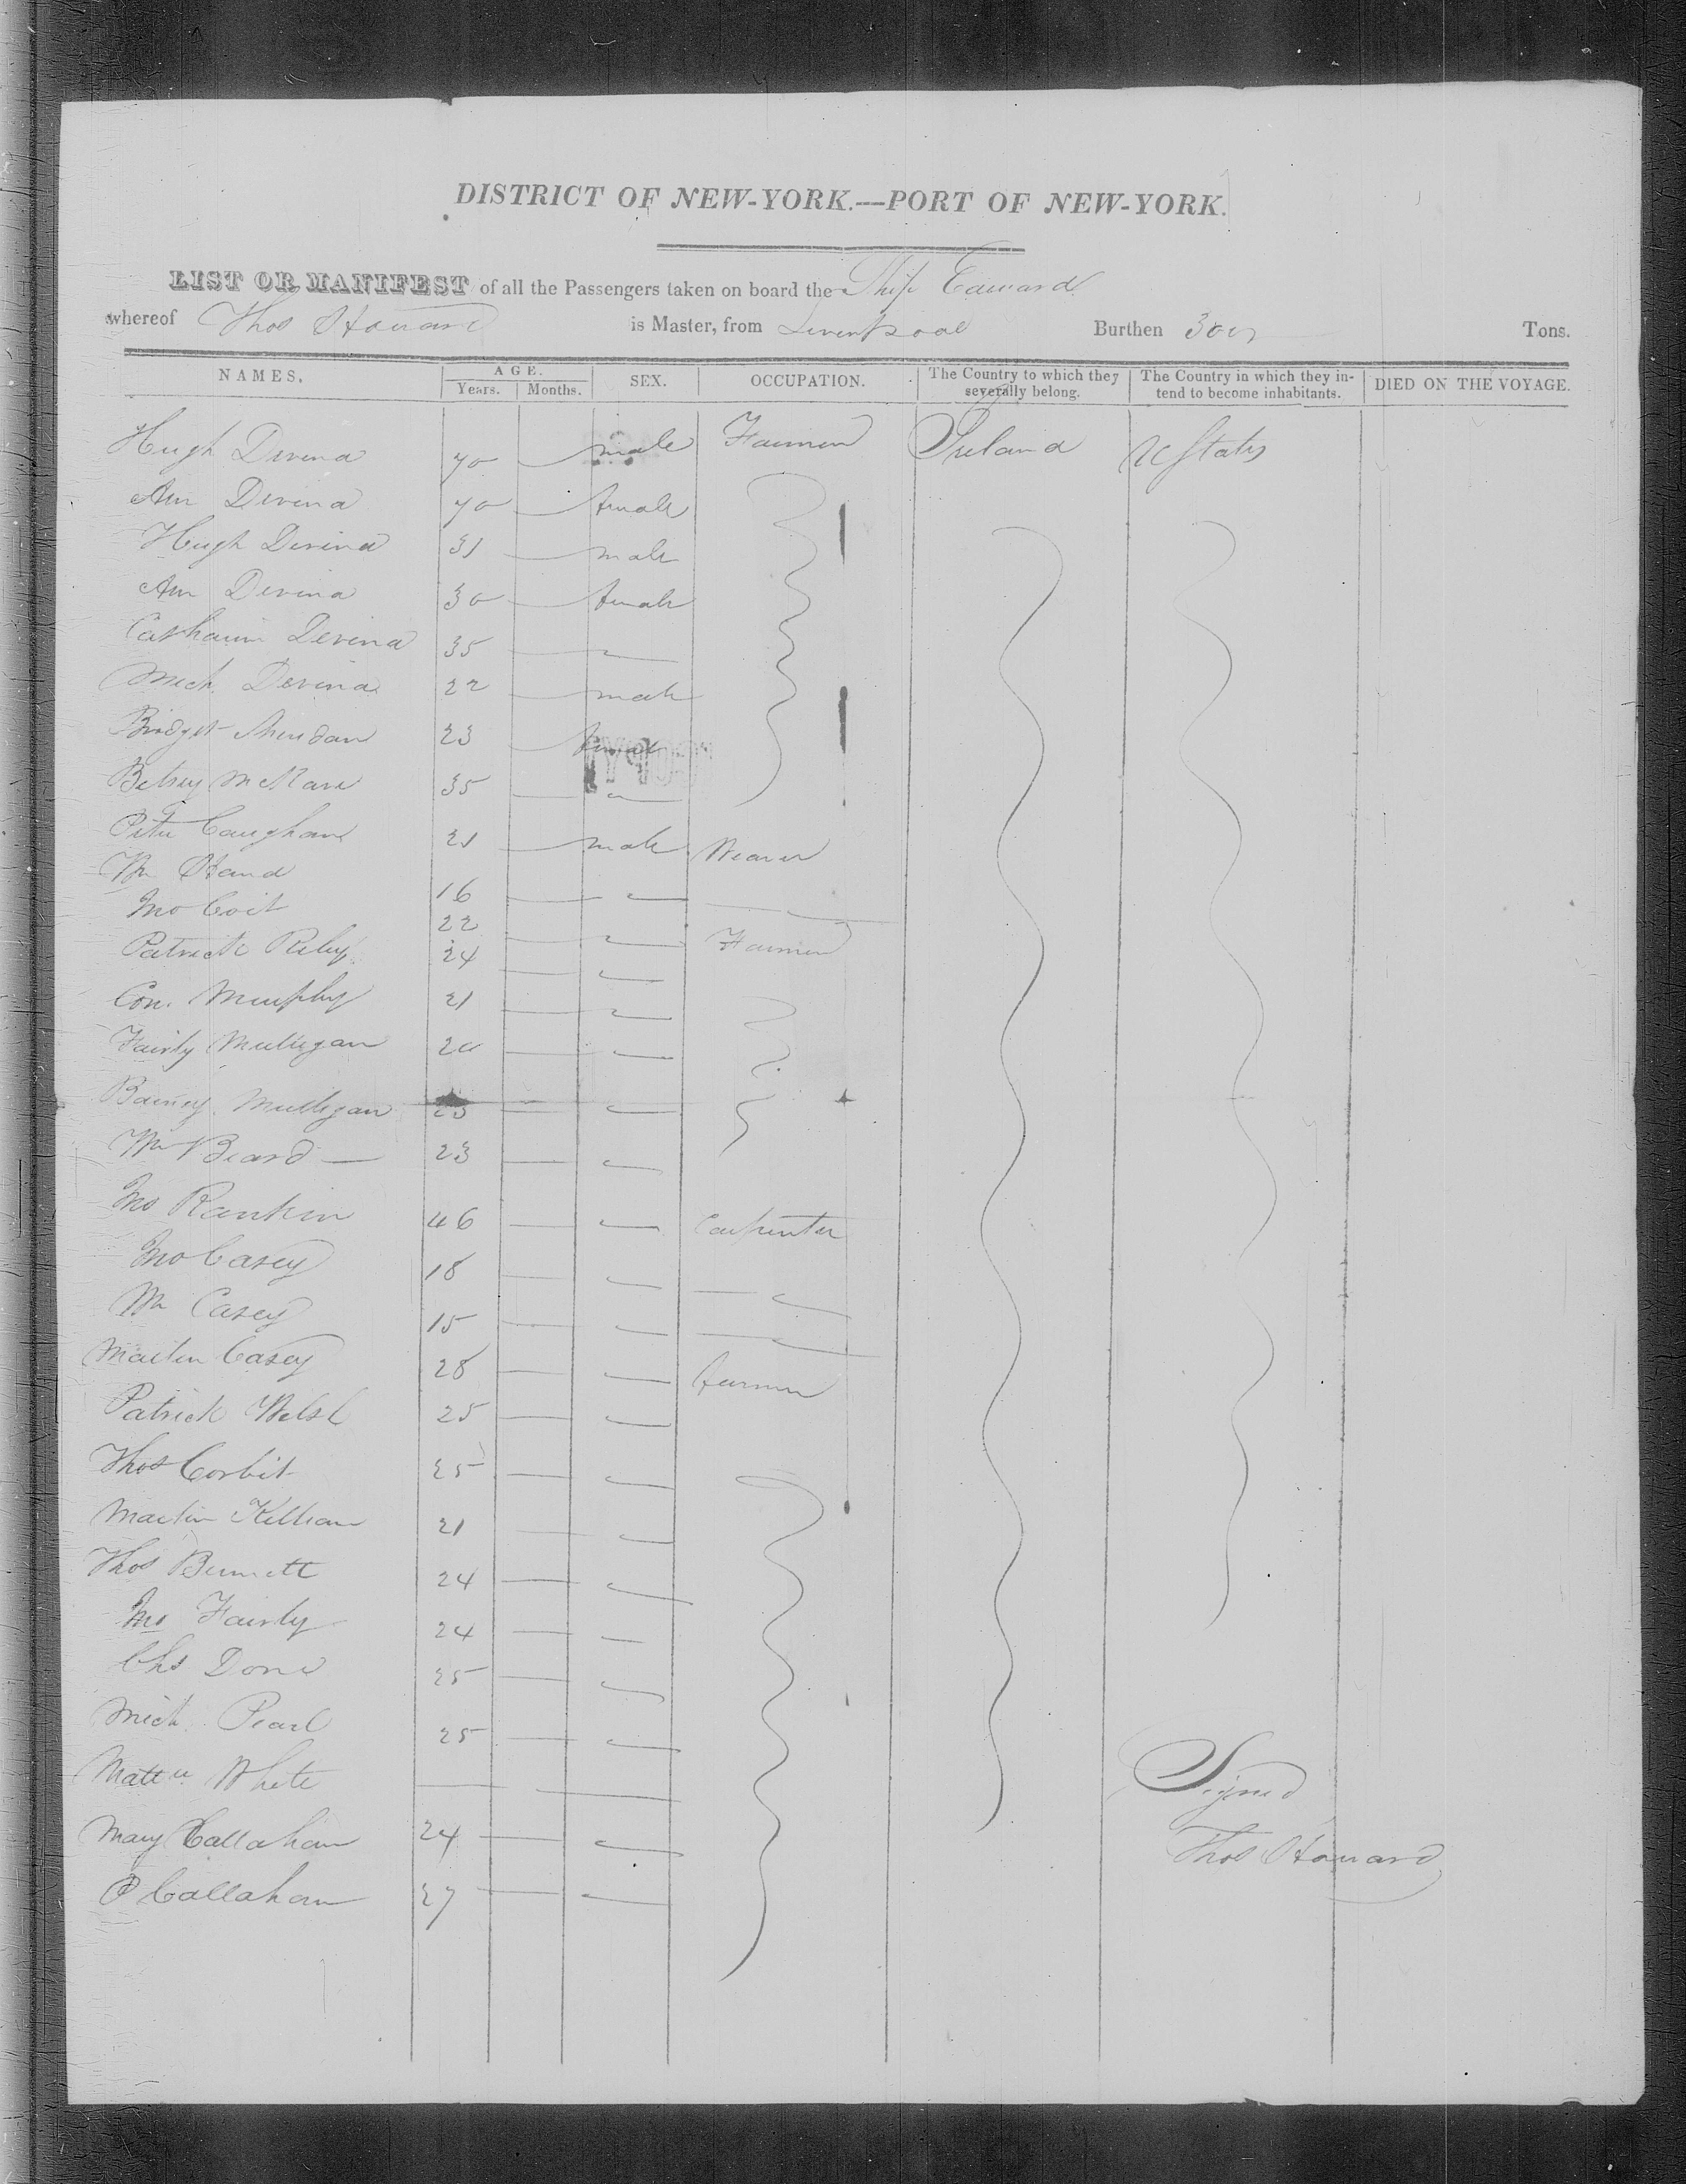 DISTRICT OF NEW-YORK.—PORT OF NEW-YORK.
LIST OR MANIFEST of all the Passengers taken on board the Ship Edward
whereof Thos Howard is Master, from Liverpool Burthen 300 Tons.
NAMES. AGE. Years. Months. SEX. OCCUPATION. The Country to which they severally belong. The Country in which they intend to become inhabitants. DIED ON THE VOYAGE.
Hugh Devina 70 — male Farmer Ireland U States
Ann Devina 70 — female
Hugh Devina 31 — male
Ann Devina 30 — female
Devina 35 —
Mich. Devina 22 — male
Bridget Sheridan 23 — female
Betsey 35 —
Peter Caughan 21 — male Weaver
Wm Hand 16 —
Jno Coit 22 — Farmer
Patrick Riley 24 —
Con. Murphy 21 —
Fairly Mulligan 20 —
Barney Mulligan —
Wm Beard — 23 —
Jno Rankin 46 — Carpenter
Jno Casey 18 —
Wm Casey 15 —
Martin Casey 28 — farmer
Patrick Welsh 25 —
Thos Corbit 25 —
Martin Killian 21 —
Thos Bennett 24 —
Jno Fairly 24 —
Chs 25 —
Mich. Pearl 25 —
Mattw White —
Signed
Mary Callahan 24 —
Thos Howard
P Callahan 27 —